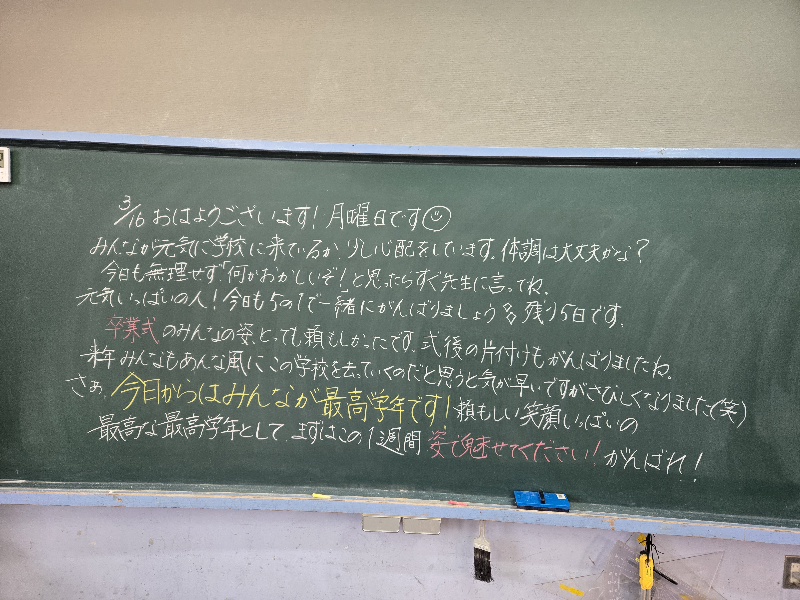 3/16 おはようございます！月曜日です☺
みんなが元気に学校に来ているか、少し心配をしています。体調は大丈夫かな？
今日も無理せず「何かおかしいぞ！」と思ったらすぐ先生に言ってね。
元気いっぱいの人！今日も5の1で一緒にがんばりましょう 残り5日です。
卒業式のみんなの姿、とっても頼もしかったです。式後の片付けもがんばりましたね。
来年みんなもあんな風にこの学校を去っていくのだと思うと気が早いですがさびしくなりました(笑)
さぁ、今日からはみんなが最高学年です！頼もしい笑顔いっぱいの
最高な最高学年として、まずはこの1週間姿で魅せてください！がんばれ！